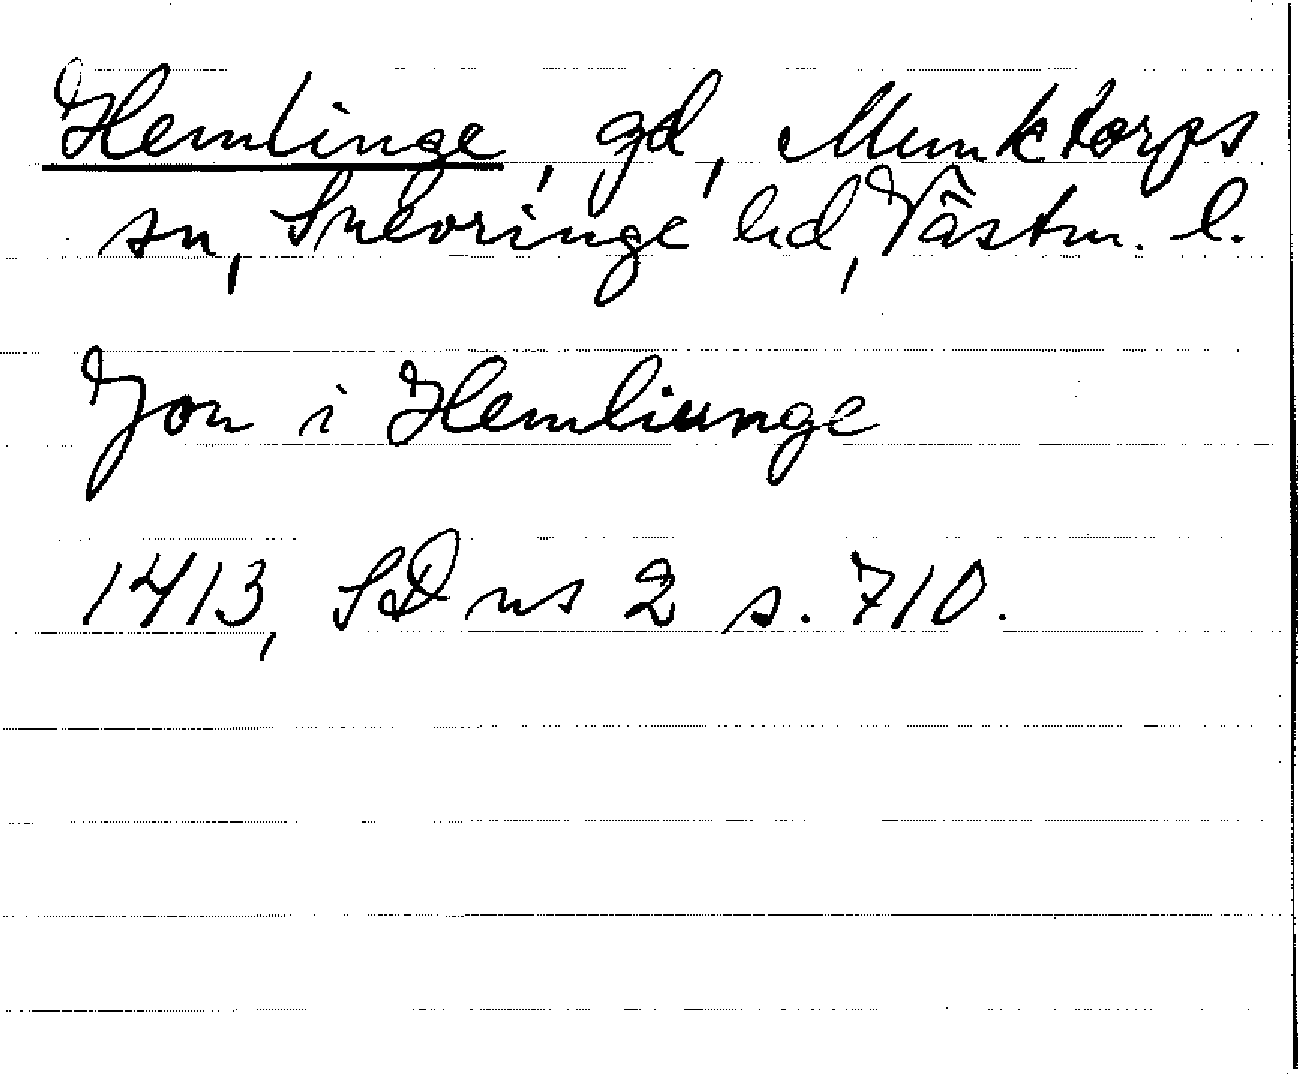 Hemlinge, gd, Munktorps
sn, Snevringe hd, Västm. l.
Jon i Hemliunge
1413, SD ns 2 s. 710.